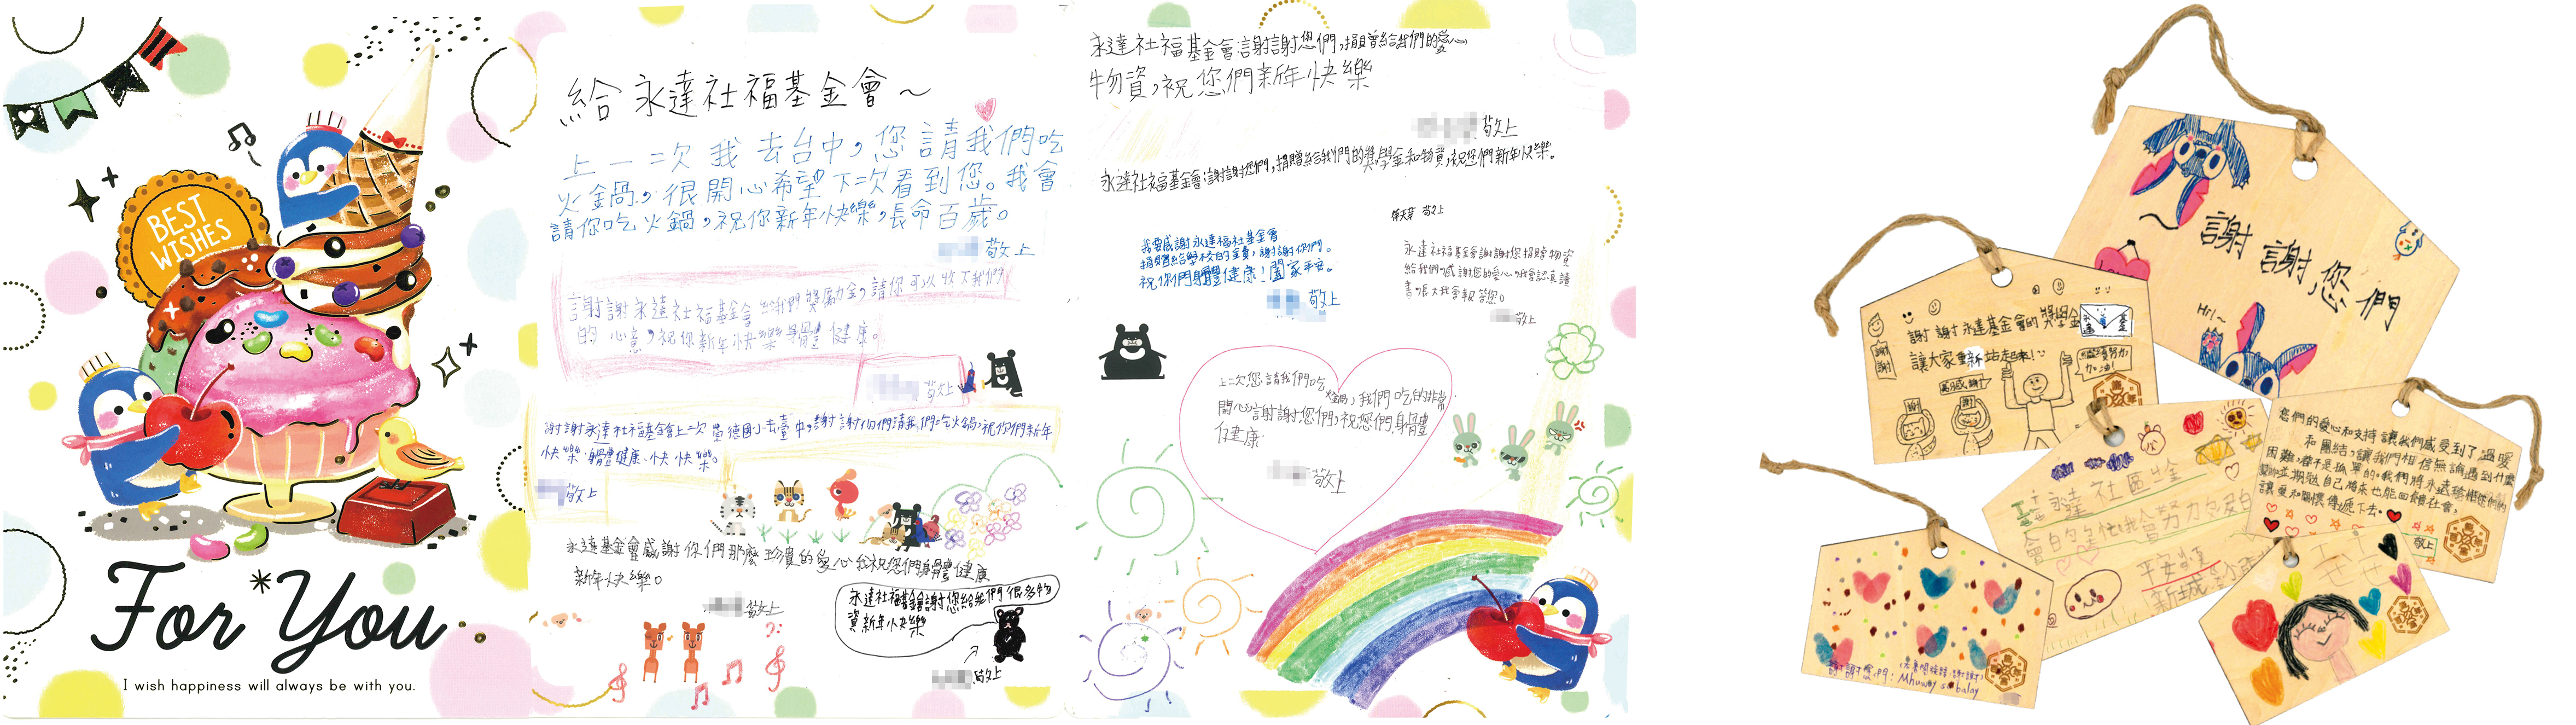 BEST
WISHES
For You
I wish happiness will always be with you.
給 永達社福基金會~
上一次我去台中,您請我們吃
火鍋,很開心希望下次看到您。我會
請你吃火鍋,祝你新年快樂,長命百歲。
敬上
謝謝永達社福基金會給我們獎勵金,請你可以收下我們
的心意,祝你新年快樂身體健康。
敬上
快樂身體健康、快快樂
敬上
永達基金會感謝你們那麼珍貴的愛心我祝您們身體健康
新年快樂。
敬上
永達社福基金會謝謝您給我們很多物
資新年快樂
敬上
永達社福基金會謝謝您們,捐贈給我們的愛心
物資,祝您們新年快樂
敬上
永達社福基金會謝謝您們,捐贈給我們的獎學金和物資,祝您們新年快樂。
敬上
我要感謝永達福社基金會
捐贈給學校的金費,謝謝你們。
祝你們身體健康!闔家平安。
敬上
永達社福基金會謝謝您捐贈物資
給我們,感謝您的愛心,我會認真讀
書,長大我會報答您。
敬上
上次您請我們吃火鍋,我們吃的非常
開心謝謝您們,祝您們身體
健康
敬上
謝謝您們
Hi!~
謝謝永達基金會的獎學金
讓大家重新站起來!
謝謝
繼續努力
加油!
萬分感謝
您們的愛心和支持讓我們感受到了溫暖
和團結,讓我們相信無論遇到什麼
困難,都不是孤單的。我們將永遠珍惜您們的
讓愛和關懷傳遞下去。
敬上
永達社區基金
平安
新城
謝謝您們:
Mhuway su balay